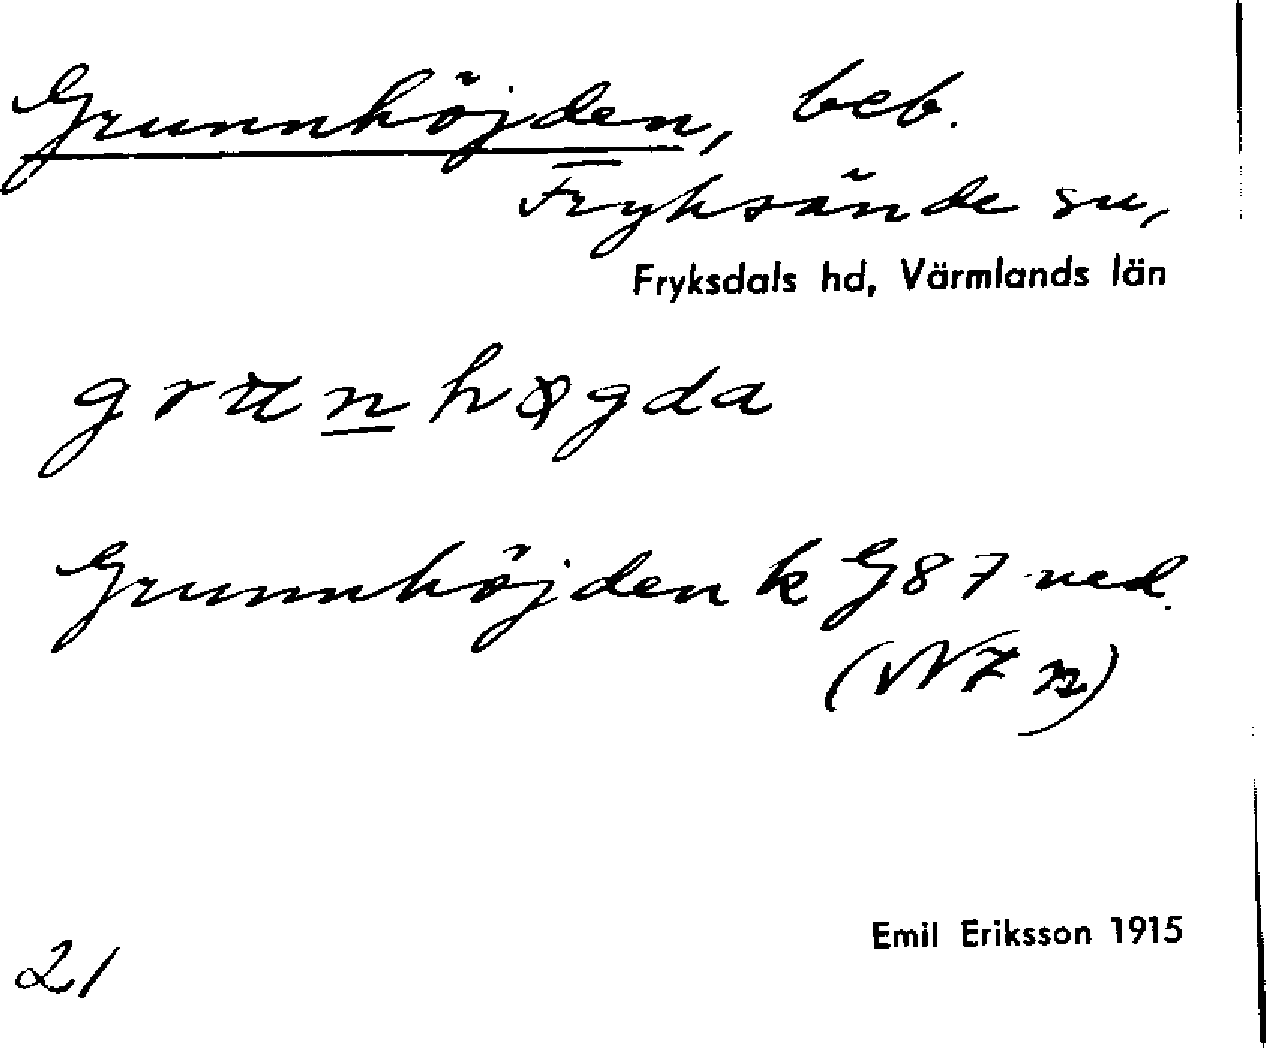 Grunnhöjden, beb.
Fryksände sn,
Fryksdals hd, Värmlands län
Grunnhöjden k G87 ned.
21
Emil Eriksson 1915